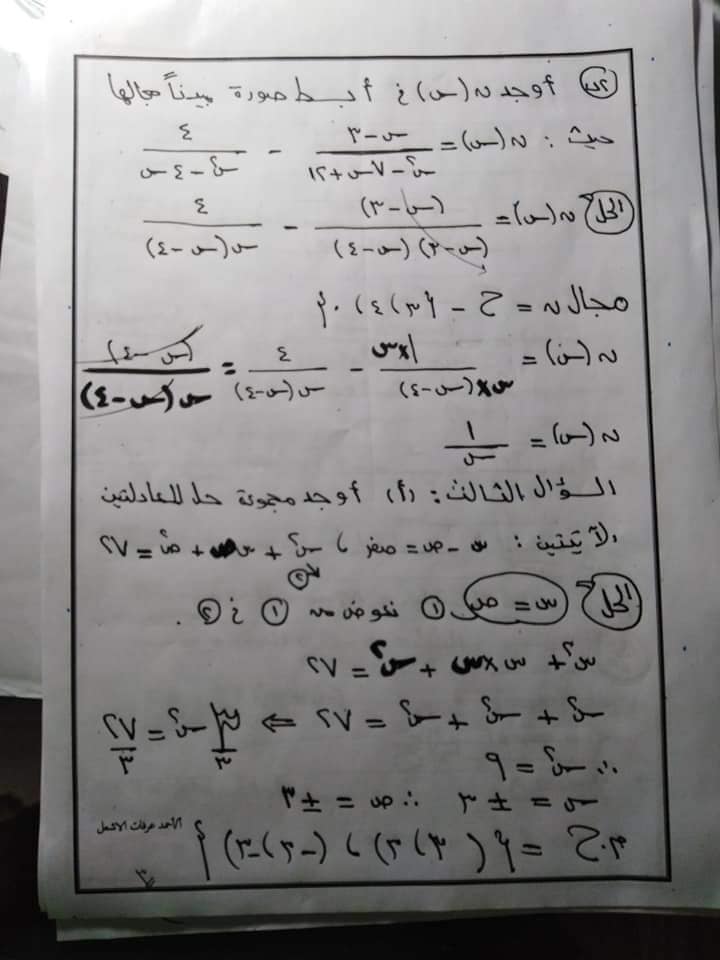 (ب) أوجد ن(س) في أبسط صورة مبيناً مجالها
حيث : ن(س) = (س - ٣)/(س٢ - ٧س + ١٢) - ٤/(س٢ - ٤س)
الحل ن(س) = (س - ٣)/((س - ٣)(س - ٤)) - ٤/(س(س - ٤))
مجال ن = ح - {٣، ٤، ٠}
ن(س) = (١×س)/(س×(س - ٤)) - ٤/(س(س - ٤)) = (س - ٤)/(س(س - ٤))
ن(س) = ١/س
السؤال الثالث : (أ) أوجد مجموعة حل المعادلتين
الآيتين : س - ص = صفر ، س٢ + س ص + ص٢ = ٢٧
②
الحل س = ص ① نعوض من ① في ② .
س٢ + س×س + س٢ = ٢٧
س٢ + س٢ + س٢ = ٢٧ ⇐ ٣س٢/٣ = ٢٧/٣
∴ س٢ = ٩
س = ± ٣ ∴ ص = ± ٣
م.ح = {(٣، ٣) ، (-٣، -٣)}